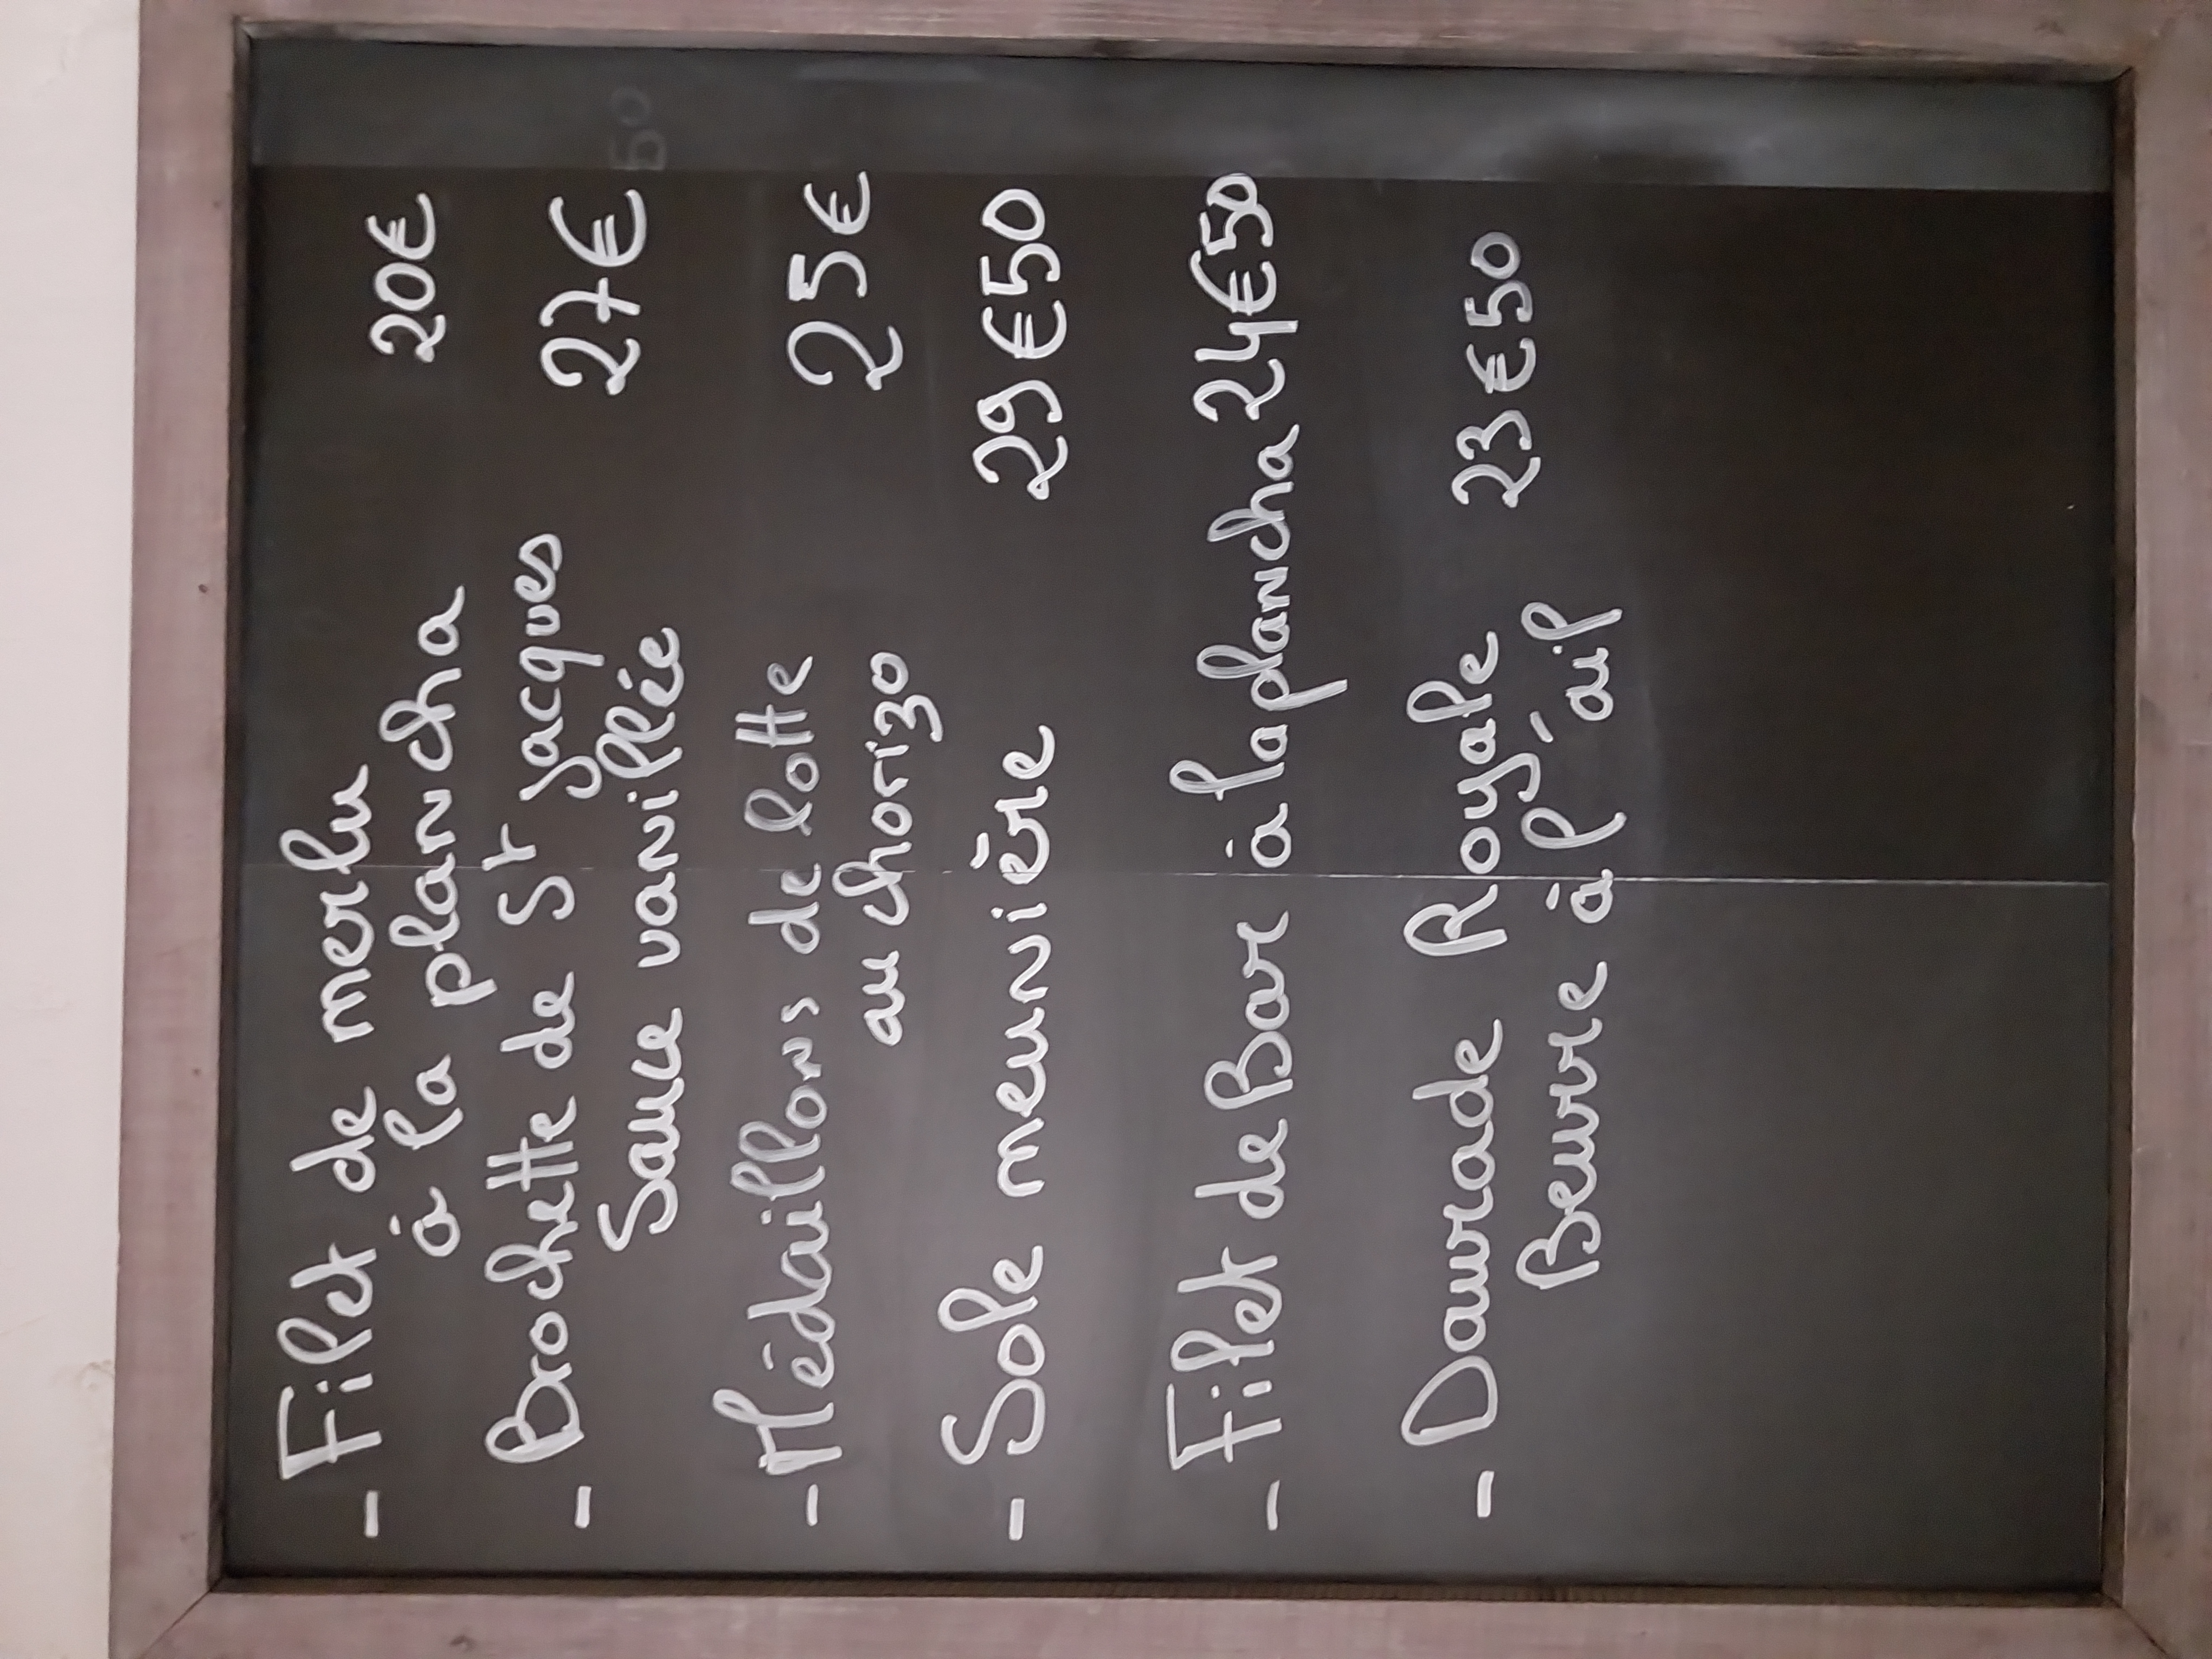 - Filet de merlu
à la plancha 20€
- Brochette de St Jacques
Sauce vanillée 27€ 50
- Médaillons de lotte
au chorizo 25€
- Sole meunière 29€50
- Filet de Bar à la plancha 24€50
- Daurade Royale 23€50
Beurre à l'ail